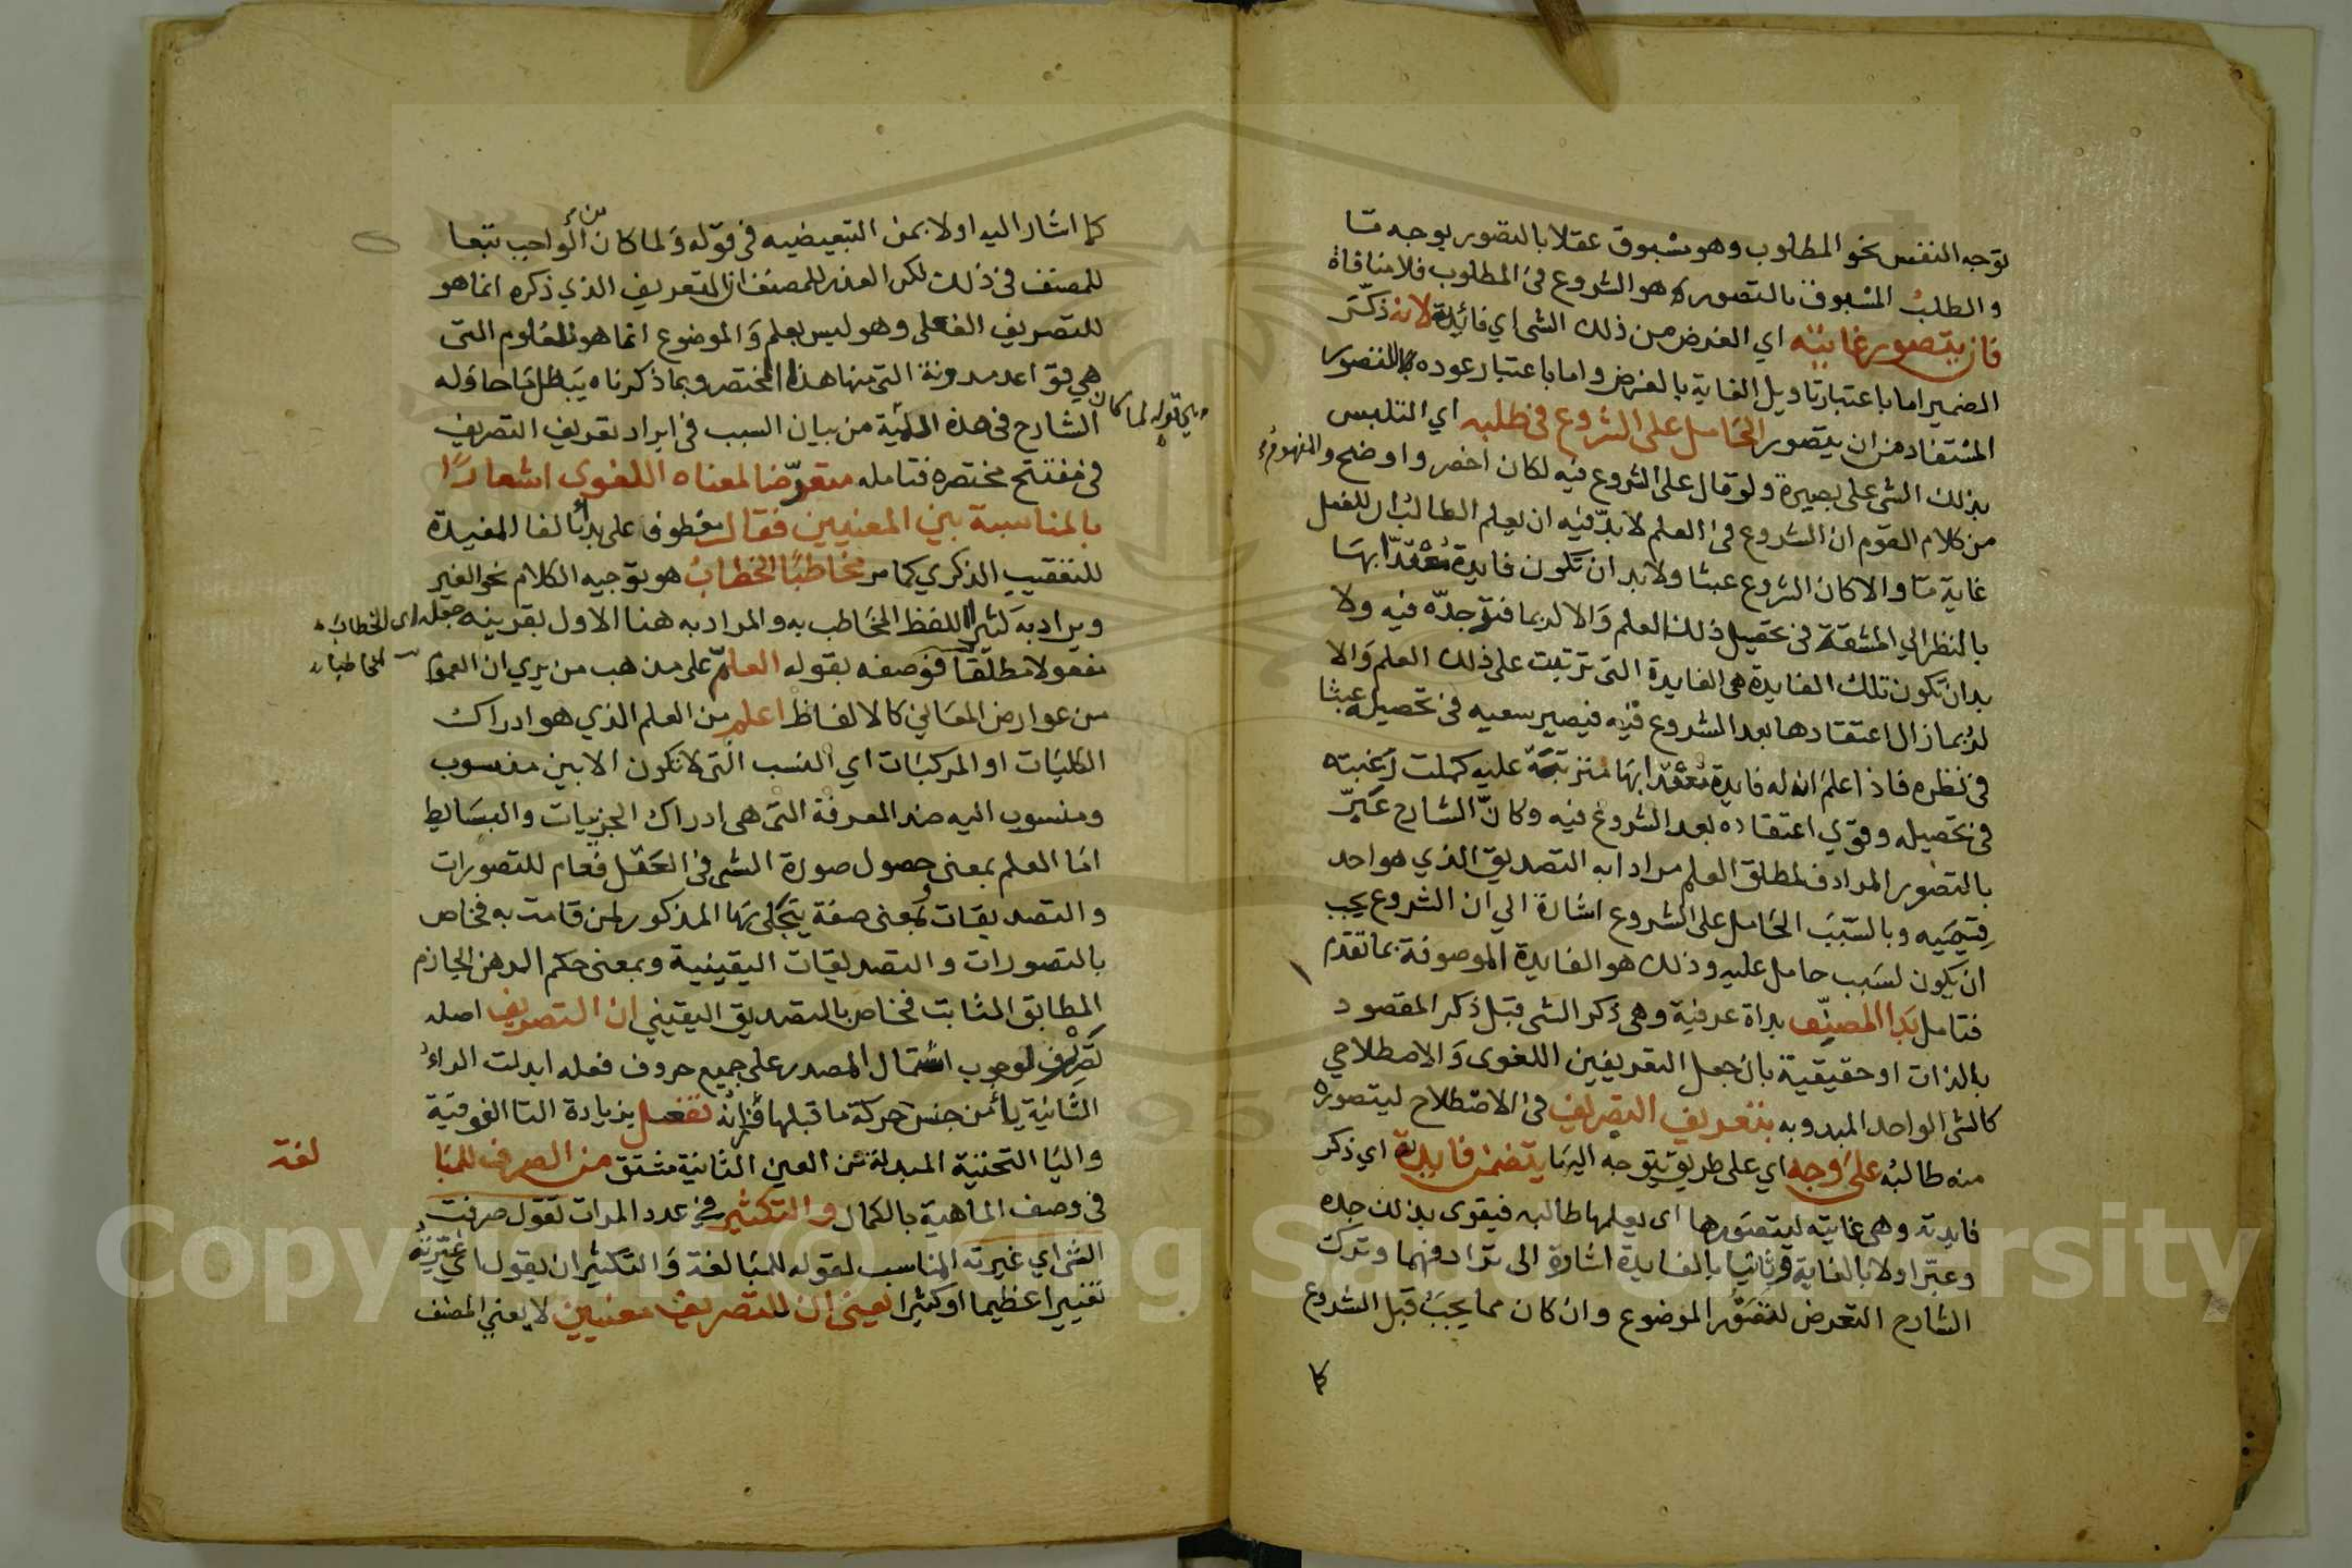 توجه النفس نحو المطلوب وهو مسبوق عقلا بالتصور بوجه مّا
والطلب المسبوق بالتصور هو الشروع في المطلوب فلا منافاة
فان يتصور غايته اي الغرض من ذلك الشى اي فائدته لانه ذكّر
الضمير اما باعتبار تاويل الغاية بالغرض واما باعتبار عوده للتصور
المستفاد من ان يتصور الحامل على الشروع في طلبه اي التلبس
بذلك الشى على بصيرة ولو قال على الشروع فيه لكان اخصر واوضح والمفهوم
من كلام القوم ان الشروع في العلم لا بدّ فيه ان يعلم الطالب ان للفعل
غاية مّا والا كان الشروع عبثا ولا بد ان تكون فايدة معتدّا بها
بالنظر الي المشقة في تحصيل ذلك العلم والا لربما فتر جدّه فيه ولا
بد ان تكون تلك الفايدة هى الفايدة التى ترتبت على ذلك العلم والا
لربما زال اعتقادها بعد الشروع فيه فيصير سعيه في تحصيله عبثا
في نظره فاذا علم ان له فايدة معتدّا بها مترتبة عليه كملت رغبته
في تحصيله وقوي اعتقاده بعد الشروع فيه وكانّ الشارح عبّر
بالتصور المرادف لمطلق العلم مرادا به التصديق الذي هو احد
قسميه وبالسّبب الحامل على الشروع اشارة الي ان الشروع يجب
ان يكون لسبب حامل عليه وذلك هو الفايدة الموصوفة بما تقدم
فتامل بدا المصنّف بداة عرفية وهى ذكر الشى قبل ذكر المقصود
بالذات او حقيقية بان جعل التعريفين اللغوى والاصطلاحي
كالشى الواحد المبدو به بتعريف التصريف في الاصطلاح ليتصوره
منه طالبه على وجه اي على طريق يتوجه اليها يتضمن فايدته اي ذكر
فايدته وهى غايته ليتصورها اى يعلمها طالبه فيقوى بذلك جده
وعبّر اولا بالغاية وثانيا بالفايدة اشارة الى ترادفهما وترك
الشارح التعرض لتصوّر الموضوع وان كان مما يجب قبل الشروع
كما
كما اشار اليه اولا بمن التبعيضيه في قوله ولما كان من الواجب تبعا
للمصنف في ذلك لكن العذر للمصنف ان التعريف الذي ذكره انما هو
للتصريف الفعلى وهو ليس بعلم والموضوع انما هو للعلوم التى
هي قواعد مدونة التى منها هذا المختصر وبما ذكرناه يبطل ما حاوله
الشارح في هذه من بيان السبب في ايراد تعريف التصريف
في مفتتح مختصره فتامله متعرّضا لمعناه اللغوى اشعارًا
بالمناسبة بين المعنيين فقال معطوف على بدأ بالفا المفيدة
للتعقيب الذكري كما مر مخاطبًا الخطاب هو توجيه الكلام نحو الغير
ويراد به كثيرا اللفظ المخاطب به والمراد به هنا الاول بقرينه جعله اى الخطاب
مفعولا مطلقا فوصفه بقوله العامّ على مذهب من يري ان العموم
من عوارض المعاني كالالفاظ اعلم من العلم الذي هو ادراك
الكليات او المركبات اي النسب التى لا تكون الا بين منسوب
ومنسوب اليه ضد المعرفة التى هى ادراك الجزييات والبسايط
اما العلم بمعنى حصول صورة الشى في العقل فعام للتصورات
والتصديقات وبمعنى صفة يتجلى بها المذكور لمن قامت به فخاص
بالتصورات والتصديقات اليقينية وبمعنى حكم الذهن الجازم
المطابق الثابت فخاص بالتصديق اليقيني ان التصريف اصله
تصررف لوجوب اشتمال المصدر على جميع حروف فعله ابدلت الراء
الثانية يا من جنس حركة ما قبلها فوزانه تفعيل بزيادة التا الفوقية
واليا التحتية المبدلة من العين الثانية مشتق من الصرف للمبا
لغة
في وصف الماهية بالكمال والتكثير في عدد المرات تقول صرفت
الشى اي غيرته المناسب لقوله للمبالغة والتكثير ان يقول اي غيّرته
تغييرا عظيما او كثيرا يعنى ان للتصريف معنيين لا يعني المصنف